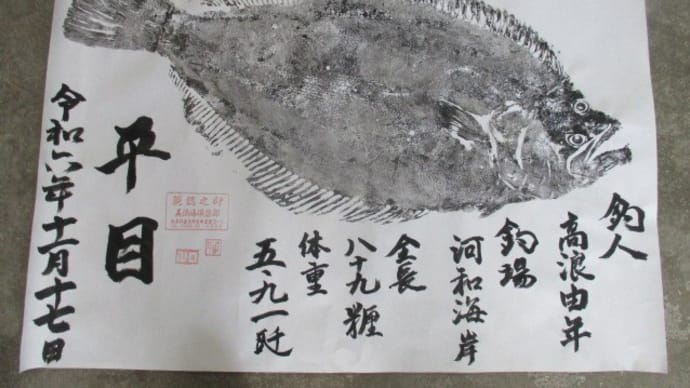 釣人
高浪由年
釣場
河和海岸
全長
八十九糎
体重
五.九一瓩
平目
令和六年十一月十七日